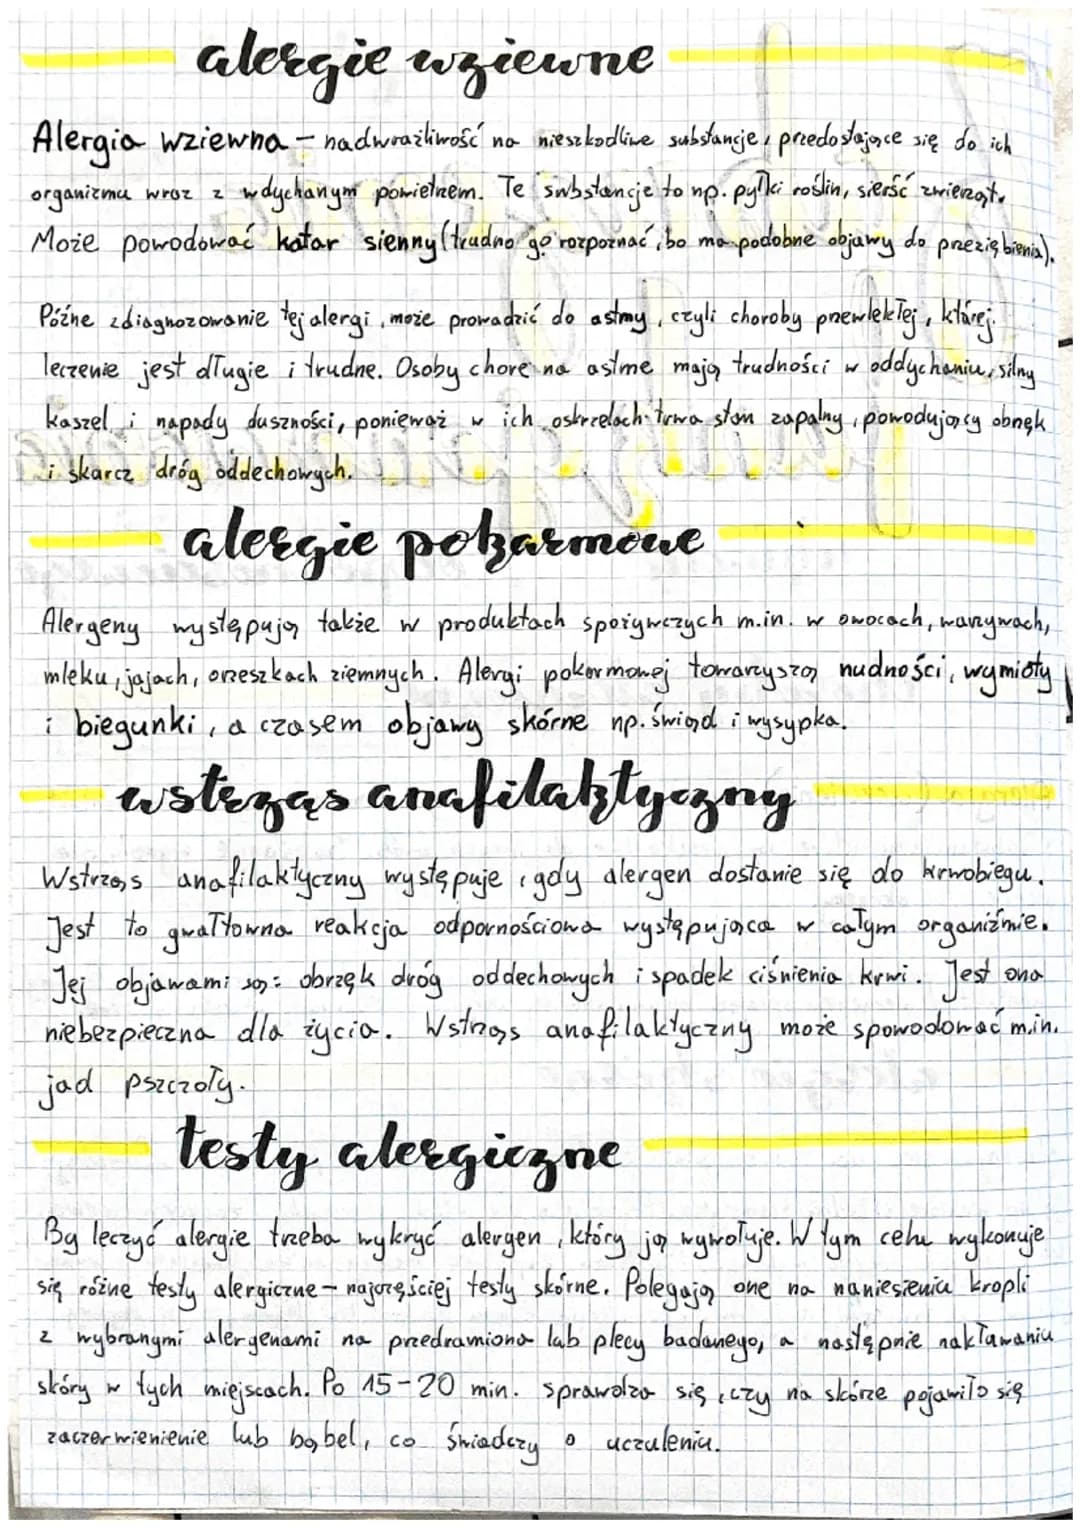 alergie wziewne
Alergia wziewna – nadwrażliwość na nieszkodliwe substancje, przedostające się do ich
organizmu wraz z wdychanym powietrzem. Te substancje to np. pyłki roślin, sierść zwierząt.
Może powodować katar sienny (trudno go rozpoznać, bo ma podobne objawy do przeziębienia).
Późne zdiagnozowanie tej alergi, może prowadzić do astmy, czyli choroby przewlekłej, której
leczenie jest długie i trudne. Osoby chore na astme mają trudności w oddychaniu, silny
kaszel i napady duszności, ponieważ w ich oskrzelach trwa stan zapalny, powodujący obrzęk
i skarcz dróg oddechowych.
alergie pokarmowe
Alergeny występują także w produktach spożywczych m.in. w owocach, warzywach,
mleku, jajach, orzeszkach ziemnych. Alergi pokarmowej towarzyszą nudności, wymioty
i biegunki, a czasem objawy skórne np. świąd i wysypka.
wstrząs anafilaktyczny
Wstrząs anafilaktyczny występuje, gdy alergen dostanie się do krwobiegu.
Jest to gwałtowna reakcja odpornościowa występująca w całym organiźmie.
Jej objawami są: obrzęk dróg oddechowych i spadek ciśnienia krwi. Jest ona
niebezpieczna dla życia. Wstrząs anafilaktyczny może spowodować m.in.
jad pszczoły.
testy alergiczne
By leczyć alergie trzeba wykryć alergen, który ją wywołuje. W tym celu wykonuje
się różne testy alergiczne – najczęściej testy skórne. Polegają one na naniesieniu kropli
z wybranymi alergenami na przedramiona lub plecy badanego, a następnie nakłuwaniu
skóry w tych miejscach. Po 15-20 min. sprawdza się, czy na skórze pojawiło się
zaczerwienienie lub bąbel, co świadczy o uczuleniu.